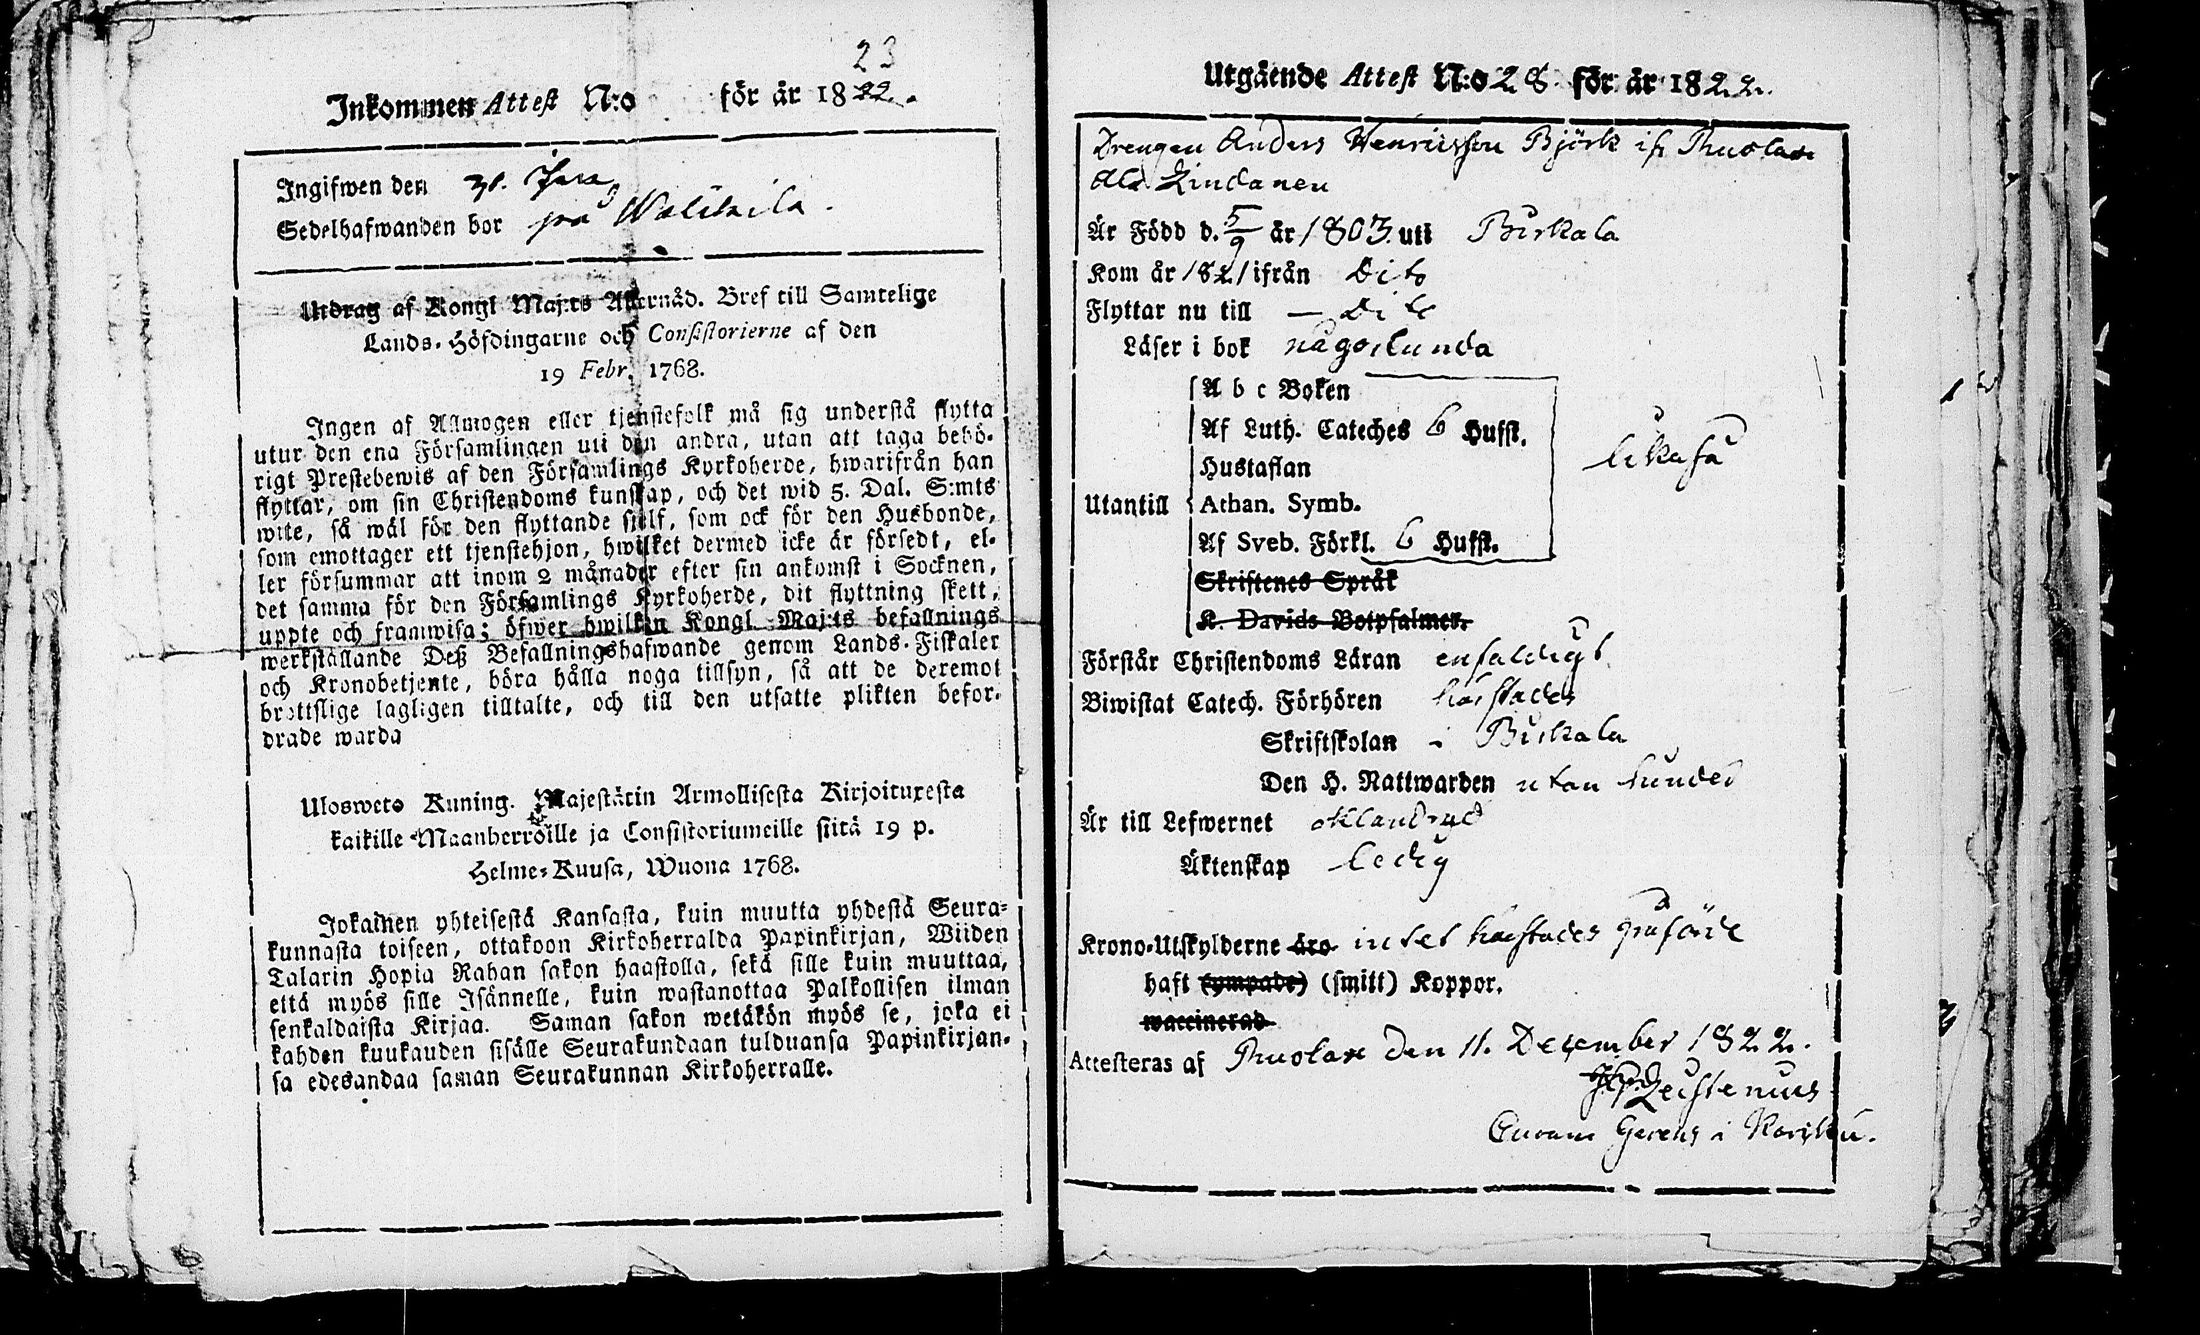 23
Inkommen Attest N:o för år 1822.
Ingifwen den 31.
Sedelhafwanden bor på
Utdrag af Kongl Maj:ts Allernåd. Bref till Samtelige
Lands-Höfdingarne och Consistorierne af den
19 Febr. 1768.
Ingen af Allmogen eller tjenstefolk må sig understå flytta
utur den ena Församlingen uti den andra, utan att taga behö-
rigt Prestebewis af den Församlings Kyrkoherde, hwarifrån han
flyttar, om sin Christendoms kunskap, och det wid 5. Dal. S:mts
wite, så wäl för den flyttande sielf, som ock för den Husbonde,
som emottager ett tjenstehjon, hwilket dermed icke är försedt, el-
ler försummar att inom 2 månader efter sin ankomst i Socknen,
det samma för den Församlings Kyrkoherde, dit flyttning skett,
uppte och framwisa; öfwer hwilken Kongl Maj:ts befallnings
werkställande Deß Befallningshafwande genom Lands-Fiskaler
och Kronobetjente, böra hålla noga tillsyn, så att de deremot
brottslige lagligen tilltalte, och till den utsatte plikten befor-
drade warda
Ulosweto Kuning. Majestätin Armollisesta Kirjoituxesta
kaikille Maanherroille ja Consistoriumeille siitä 19 p.
Helme-Kuusa, Wuona 1768.
Jokainen yhteisestä Kansasta, kuin muutta yhdestä Seura-
kunnasta toiseen, ottakoon Kirkoherralda Papinkirjan, Wiiden
Talarin Hopia Rahan sakon haastolla, sekä sille kuin muuttaa,
että myös sille Isännelle, kuin wastanottaa Palkollisen ilman
senkaldaista Kirjaa. Saman sakon wetäkön myös se, joka ei
kahden kuukauden sisälle Seurakundaan tulduansa Papinkirjan-
sa edesandaa saman Seurakunnan Kirkoherralle.
Utgående Attest N:o 28 för år 1822.
Drengen Anders Henriksson Björk ifr
Lindanen
Är Född d. 5/9 år 1803 uti Birkala
Kom år 1821 ifrån Dito
Flyttar nu till — Dito
Läser i bok någorlunda
Utantill
A b c Boken
Af Luth. Cateches 6 Hufst.
Hustaflan
Athan. Symb.
Af Sveb. Förkl. 6 Hufst.
Skriftenes Språk
K. Davids Botpsalmer.
likaså
Förstår Christendoms Läran enfaldigt
Biwistat Catech. Förhören härstädes
Skriftskolan i Birkala
Den H. Nattwarden utan hinder
Är till Lefwernet oklandrad
Äktenskap ledig
Krono-Utskylderne äro intet härstädes påförde
haft (ympade) (smitt) Koppor.
waccinerad
Attesteras af den 11. December 1822.
Zeistenius
Curam Gerens i Karkku.